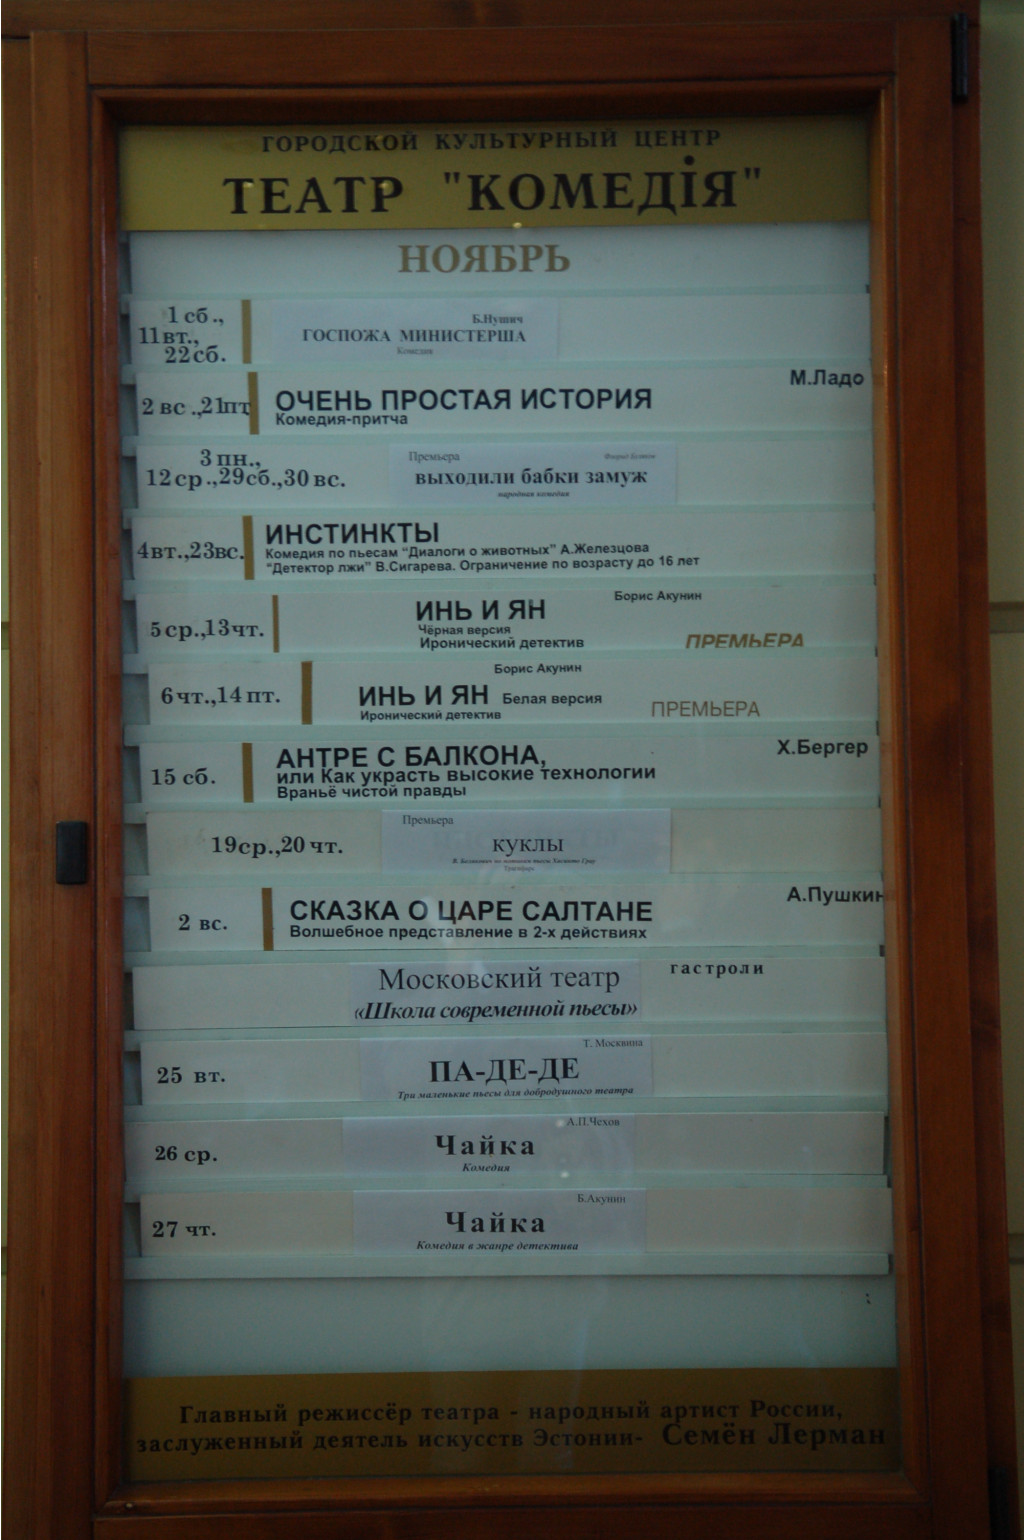 ГОРОДСКОЙ КУЛЬТУРНЫЙ ЦЕНТР
ТЕАТР "КОМЕДІЯ"
НОЯБРЬ
1 сб.,
11 вт.,
22 сб.
Б.Нушич
ГОСПОЖА МИНИСТЕРША
Комедия
2 вс.,21пт
М.Ладо
ОЧЕНЬ ПРОСТАЯ ИСТОРИЯ
Комедия-притча
3 пн.,
12 ср.,29сб.,30 вс.
Премьера
выходили бабки замуж
народная комедия
4вт.,23вс.
ИНСТИНКТЫ
Комедия по пьесам “Диалоги о животных” А.Железцова
“Детектор лжи” В.Сигарева. Ограничение по возрасту до 16 лет
5 ср.,13 чт.
Борис Акунин
ИНЬ И ЯН
Чёрная версия
Иронический детектив
ПРЕМЬЕРА
6 чт.,14 пт.
Борис Акунин
ИНЬ И ЯН Белая версия
Иронический детектив
ПРЕМЬЕРА
15 сб.
Х.Бергер
АНТРЕ С БАЛКОНА,
или Как украсть высокие технологии
Враньё чистой правды
19ср.,20 чт.
Премьера
куклы
2 вс.
А.Пушкин
СКАЗКА О ЦАРЕ САЛТАНЕ
Волшебное представление в 2-х действиях
Московский театр гастроли
«Школа современной пьесы»
25 вт.
Т. Москвина
ПА-ДЕ-ДЕ
Три маленькие пьесы для добродушного театра
26 ср.
А.П.Чехов
Чайка
Комедия
27 чт.
Б.Акунин
Чайка
Комедия в жанре детектива
Главный режиссёр театра - народный артист России,
заслуженный деятель искусств Эстонии- Семён Лерман